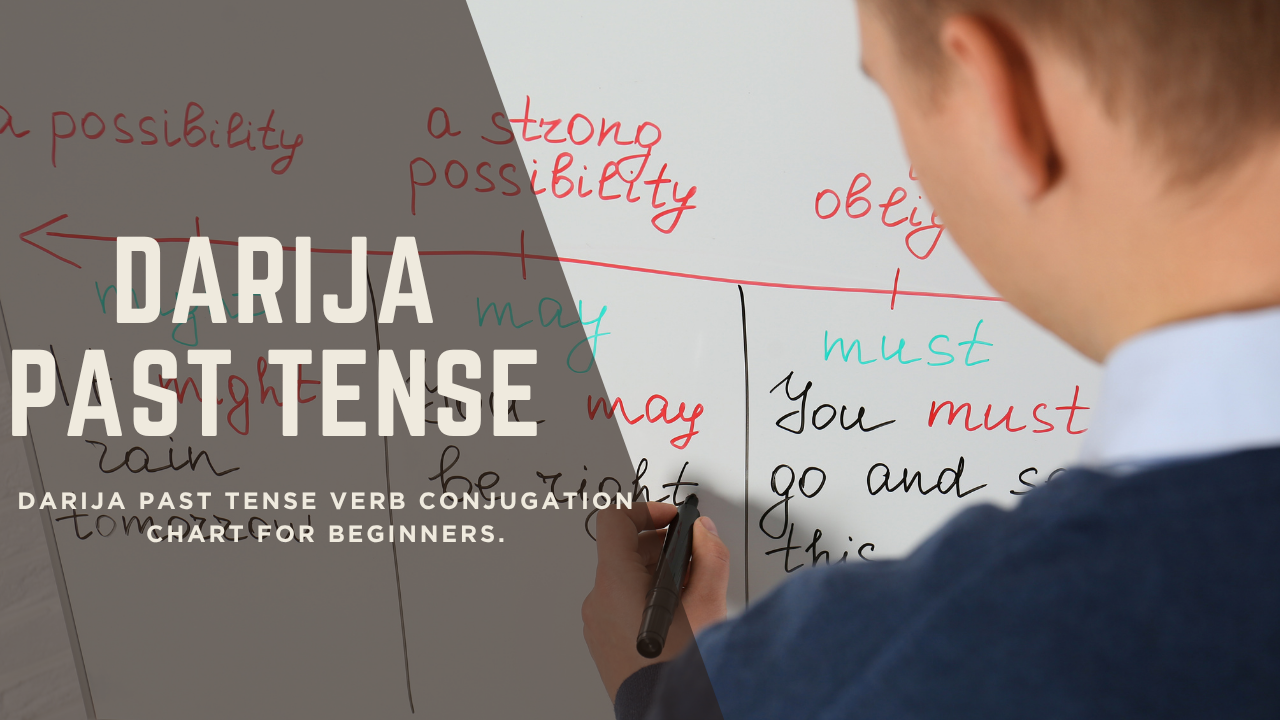 a possibility
a strong
possibility
DARIJA
PAST TENSE
DARIJA PAST TENSE VERB CONJUGATION
CHART FOR BEGINNERS.
might
might
rain
tomorrow
may
may
be right
must
You must
go and
this